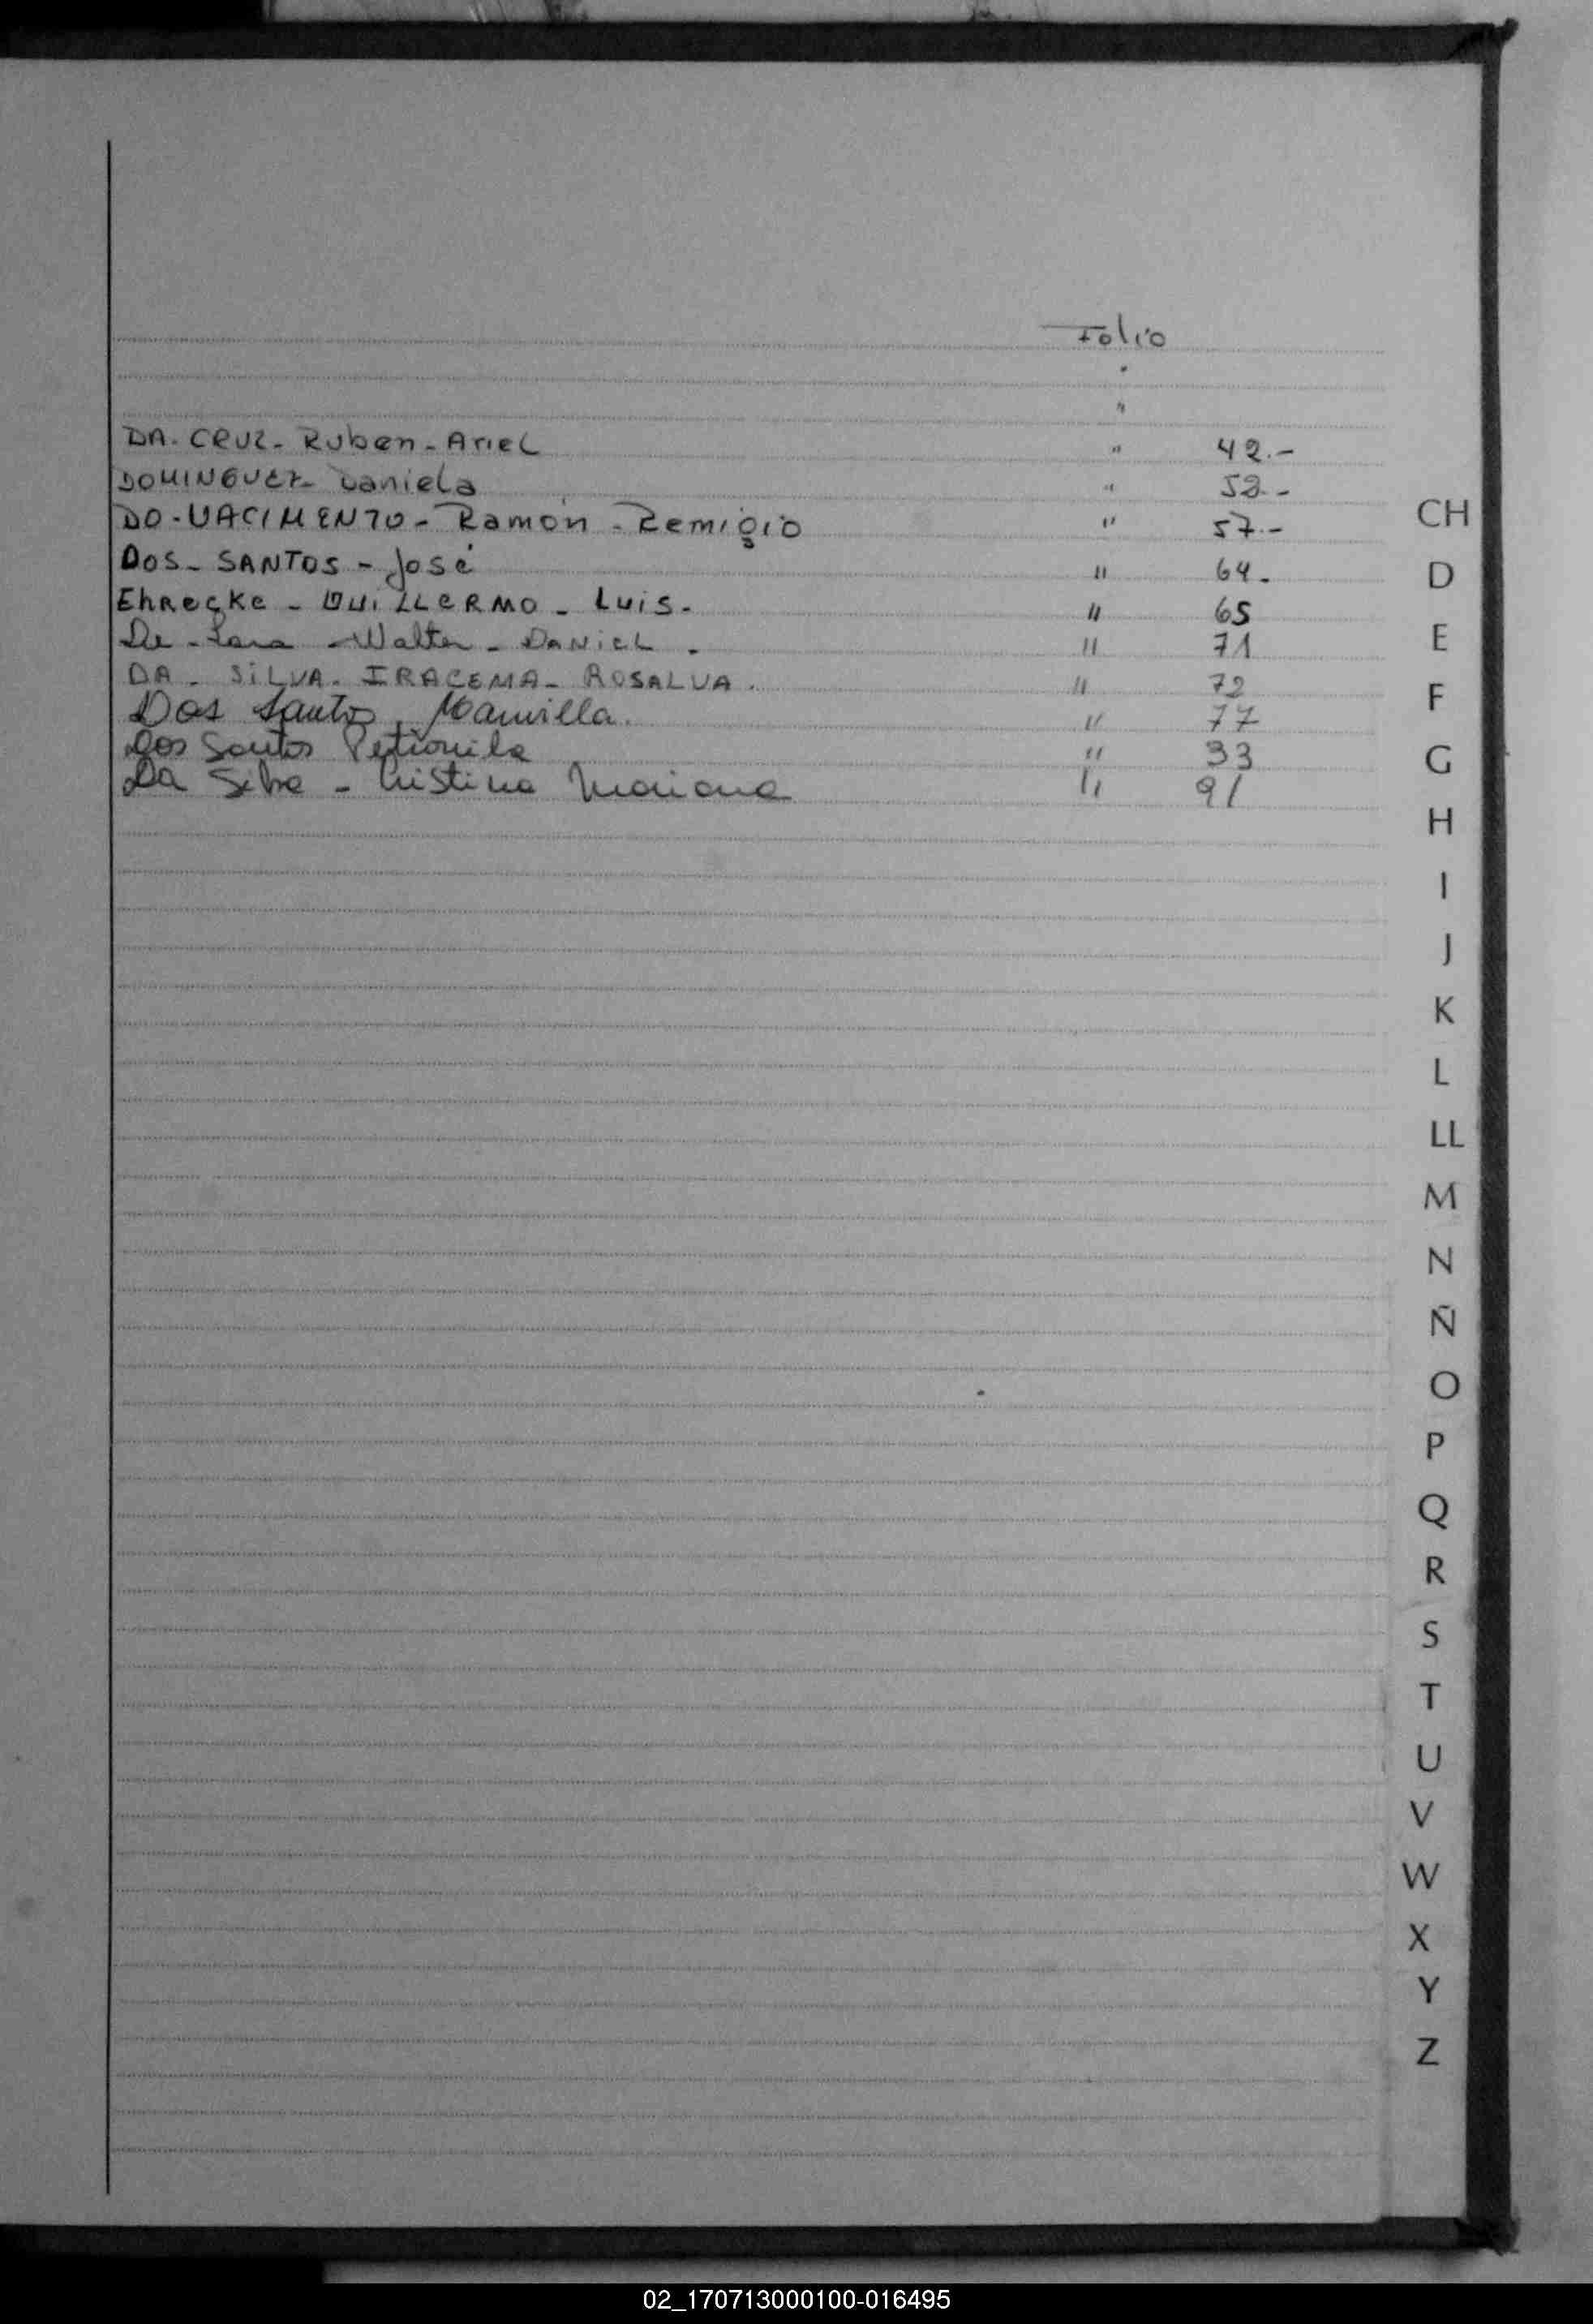 Folio
"
"
DA. CRUZ - Ruben - Ariel " 42.-
DOMINGUEZ - Daniela " 52.-
DO - NACIMENTO - Ramón - Remigio " 57.-
DOS - SANTOS - José " 64.
EhRecKe - GUILLERMO - Luis. " 65
De - Lara - Walter - DANIEL. " 71
DA - SILVA. IRACEMA - ROSALVA. " 72
Dos Santos, " 77
Dos Santos Petronila " 33
Da Silva - Cristina Mariana " 91
CH
D
E
F
G
H
I
J
K
L
LL
M
N
Ñ
O
P
Q
R
S
T
U
V
W
X
Y
Z
02_170713000100-016495